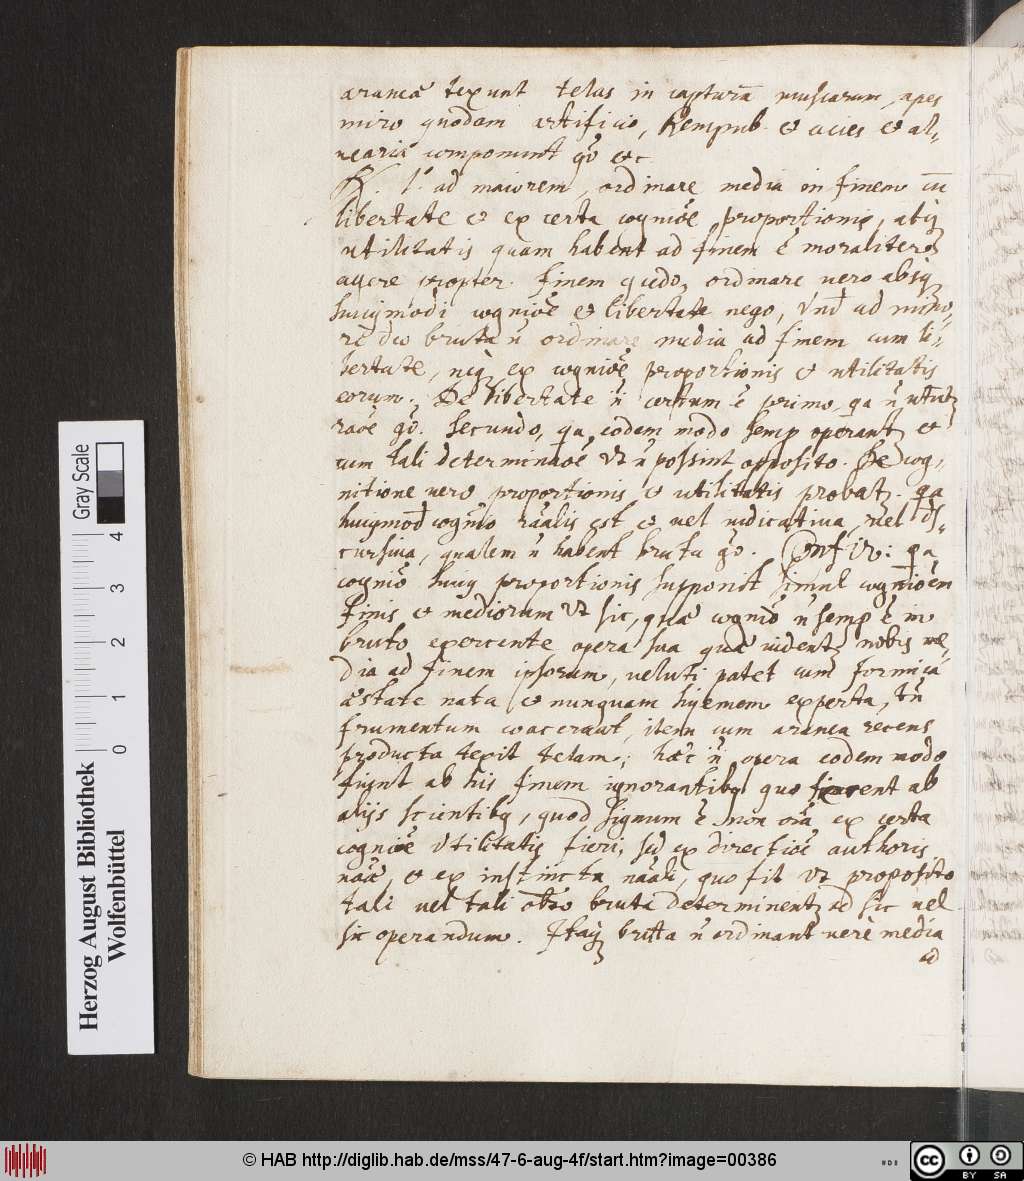 araneæ texunt telas in capturā muscarum, apes
miro quodam artificio, Rempub. et acies et al-
uearia componunt gõ etc
R. 1.º ad maiorem, ordinare media in finem cū
libertate et ex certa cogniōe proportionis, atq
utilitatis quam habent ad finem ē moraliter
agere propter finem cedo, ordinare uero absq
huiusmodi cogniōe et libertate nego, Vnd ad mino-
rē dico bruta ñ ordinare media ad finem cum li-
bertate, neq ex cogniōe proportionis et utilitatis
eorum. De libertate ñ certum ē primo, qa ñ
raōe gõ. Secundo, qa eodem modo semp operant et
cum tali determinaōe Vt ñ possint opposito. De cog-
nitione uero proportionis et utilitatis probat. qa
huiusmod cognio raālis est et uel iudicatiua, uel dis-
cursiua, qualem ñ habent bruta gõ. Confir: qa
cognio huius proportionis supponit simul cognioēm
finis et mediorum Vt sic, quæ cognio ñ semp ē in
bruto exercente opera sua quæ uident nobis me-
dia ad finem ipsorum, ueluti patet cum formica
æstate nata et nunquam hyemem experta, tñ
frumentum coaceruat, item cum aranea recens
producta texit telam; hæc ñ opera eodem modo
fiunt ab his finem ignorantibq quo fierent ab
alijs scientibq, quod signum ē non oīa ex certa
cogniōe Vtilitatis fieri, sed ex directiōe authoris
naæ, et ex instinctu naāli, quo fit Vt proposito
tali uel tali obto bruta determinent ad sic uel
sic operandum. Itaq bruta ñ ordinant uerè media
ad
Gray Scale
4
3
2
1
0
Herzog August Bibliothek
Wolfenbüttel
© HAB http://diglib.hab.de/mss/47-6-aug-4f/start.htm?image=00386
cc BY SA